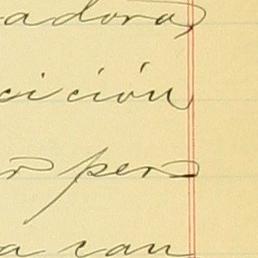 adora,
sición
o per
a can